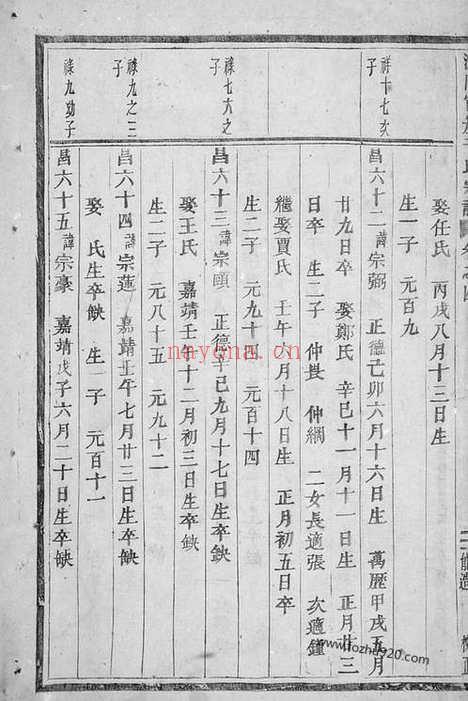 娶任氏 丙戌八月十三日生
生一子 元百九
祥十七次子
昌六十二 諱宗弼 正德己卯六月十六日生 萬歷甲戌五月
廿九日卒 娶鄭氏 辛巳十一月十一日生 正月廿三
日卒 生二子 仲 仲綱 二女長適張 次適鍾
繼娶賈氏 壬午六月十八日生 正月初五日卒
生二子 元九十四 元百十四
祿七六之子
昌六十三 諱宗頤 正德辛巳九月十七日生卒缺
娶王氏 嘉靖壬午十二月初三日生卒缺
生二子 元八十五 元九十二
祿九之三子
昌六十四 諱宗蓮 嘉靖壬午七月廿三日生卒缺
娶 氏生卒缺 生一子 元百十一
祿九幼子
昌六十五 諱宗豪 嘉靖戊子六月二十日生卒缺
nayona.cn
www.fozhu920.com